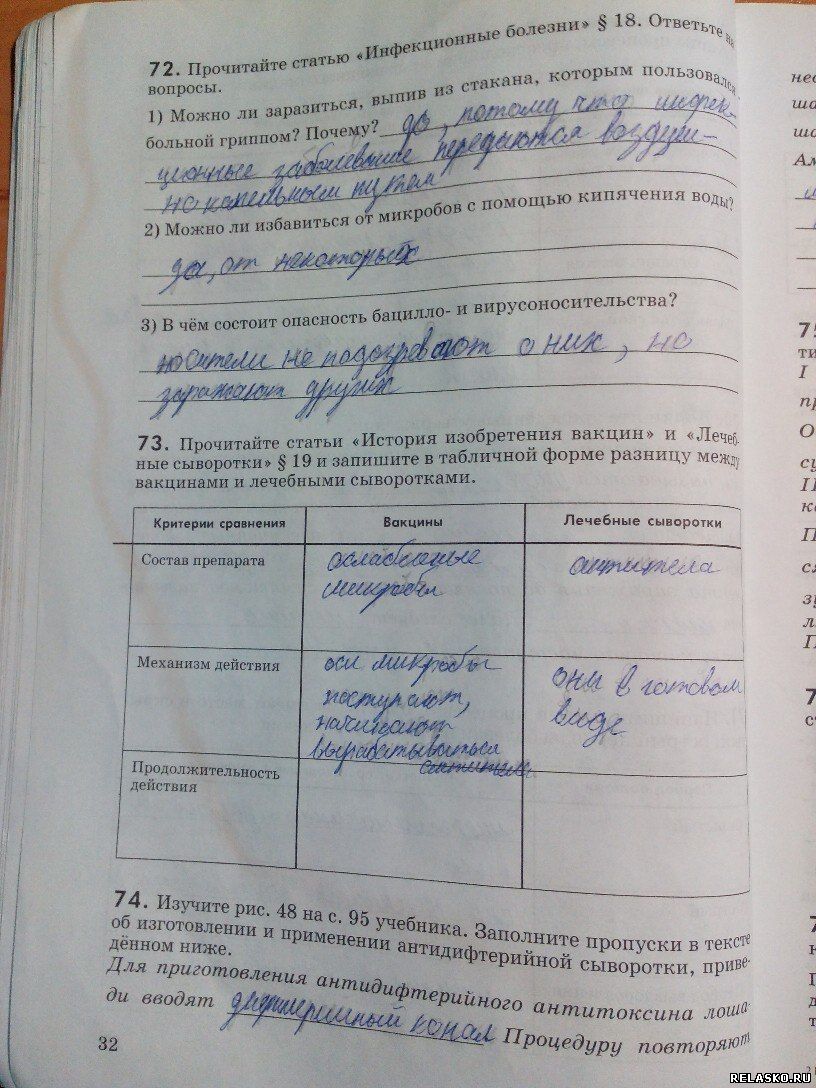 72. Прочитайте статью «Инфекционные болезни» § 18. Ответьте на
вопросы.
1) Можно ли заразиться, выпив из стакана, которым пользовался
больной гриппом? Почему? да, потому что инфек-
ционные заболевание передаются воздуш-
но капельным путем
2) Можно ли избавиться от микробов с помощью кипячения воды?
да, от некоторых
3) В чём состоит опасность бацилло- и вирусоносительства?
носители не подозревают о них, но
заражают других
73. Прочитайте статьи «История изобретения вакцин» и «Лечеб-
ные сыворотки» § 19 и запишите в табличной форме разницу между
вакцинами и лечебными сыворотками.
Критерии сравнения Вакцины Лечебные сыворотки
Состав препарата ослабленные антитела
микробы
Механизм действия микробы они в готовом
поступают, виде
начинают
вырабатываться
антитела
Продолжительность
действия
74. Изучите рис. 48 на с. 95 учебника. Заполните пропуски в тексте
об изготовлении и применении антидифтерийной сыворотки, приве-
дённом ниже.
Для приготовления антидифтерийного антитоксина лоша-
ди вводят Процедуру повторяют
32
RELASKO.RU